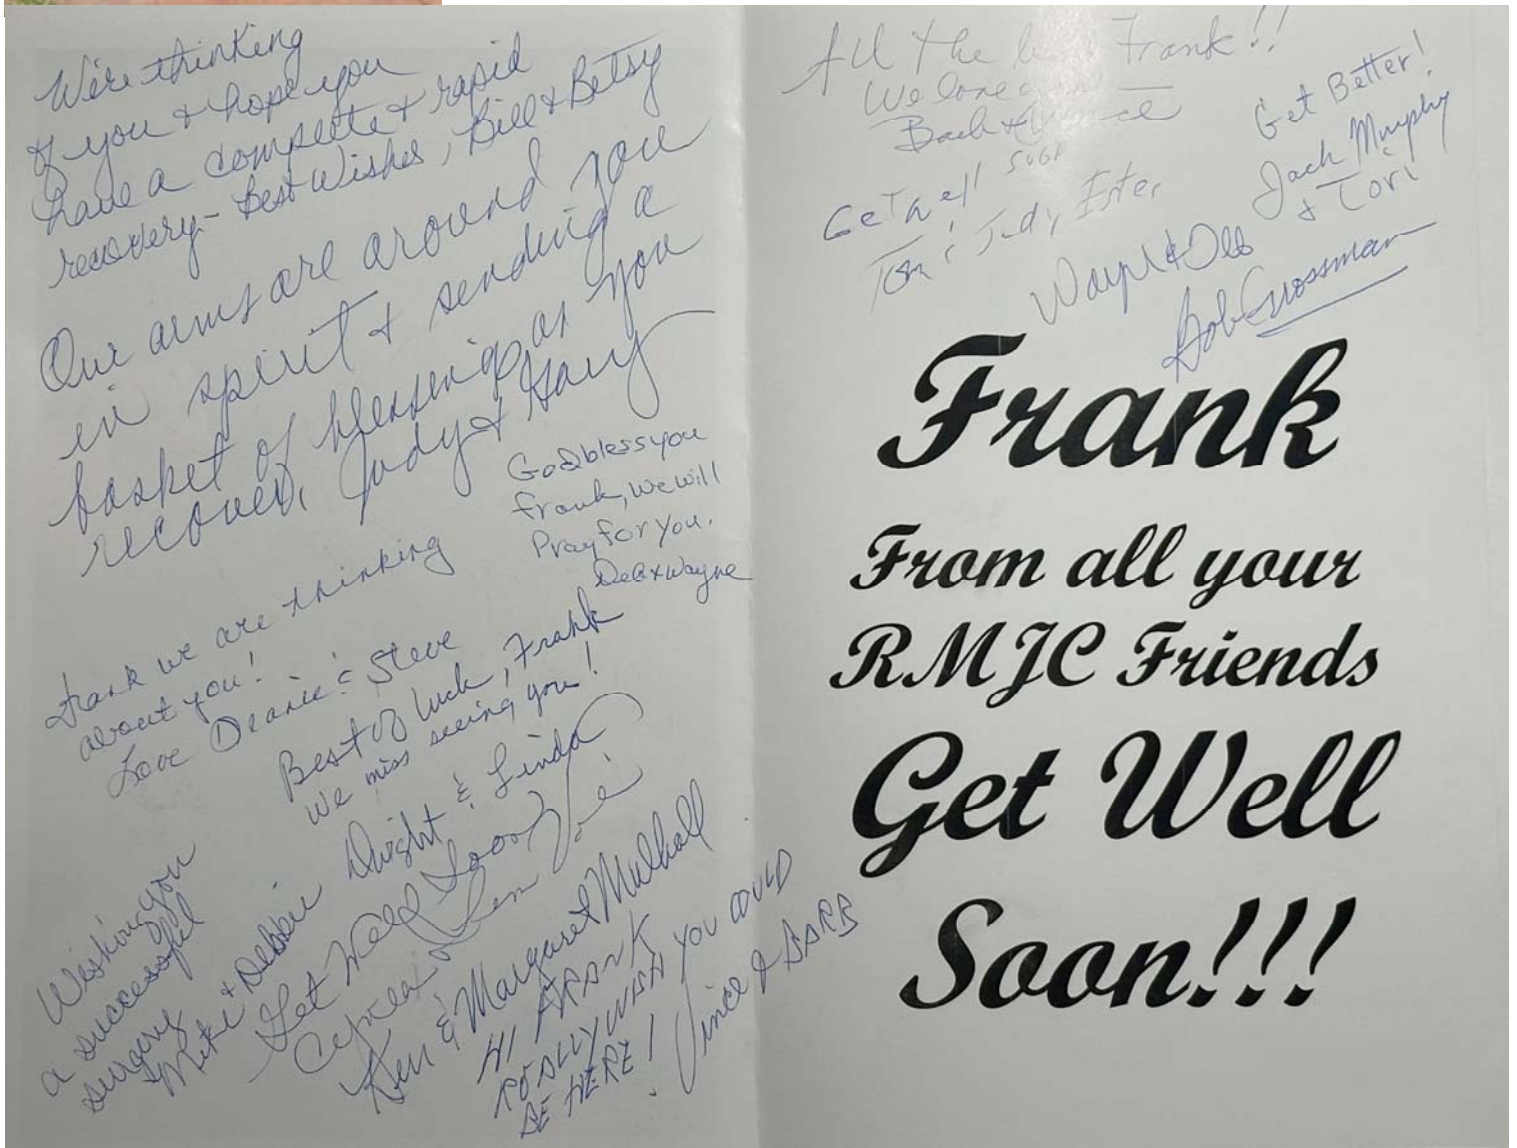 We're thinking
of you & hope you
have a complete & rapid
recovery - Best Wishes, Bill & Betsy
Our arms are around you
in spirit & sending a
basket of blessings as you
recover, Judy & Gary
God bless you
Frank, we will
Pray for you.
Deb & Wayne
Frank we are thinking
about you!
Love Deanie & Steve
Best of luck, Frank
We miss seeing you!
Dwight & Linda
Wishing you
a successful
surgery
Mike & Debbie
Get Well Soon
Ken & Margaret Mulhall
HI FRANK
REALLY WISH YOU COULD
BE HERE! Vince & BARB
All the Frank!!
We love
Get well soon
Tom & Judy
Get Better!
Jack Murphy
& Tori
Wayne & Deb
Bob Grossman
Frank
From all your
RMJC Friends
Get Well
Soon!!!